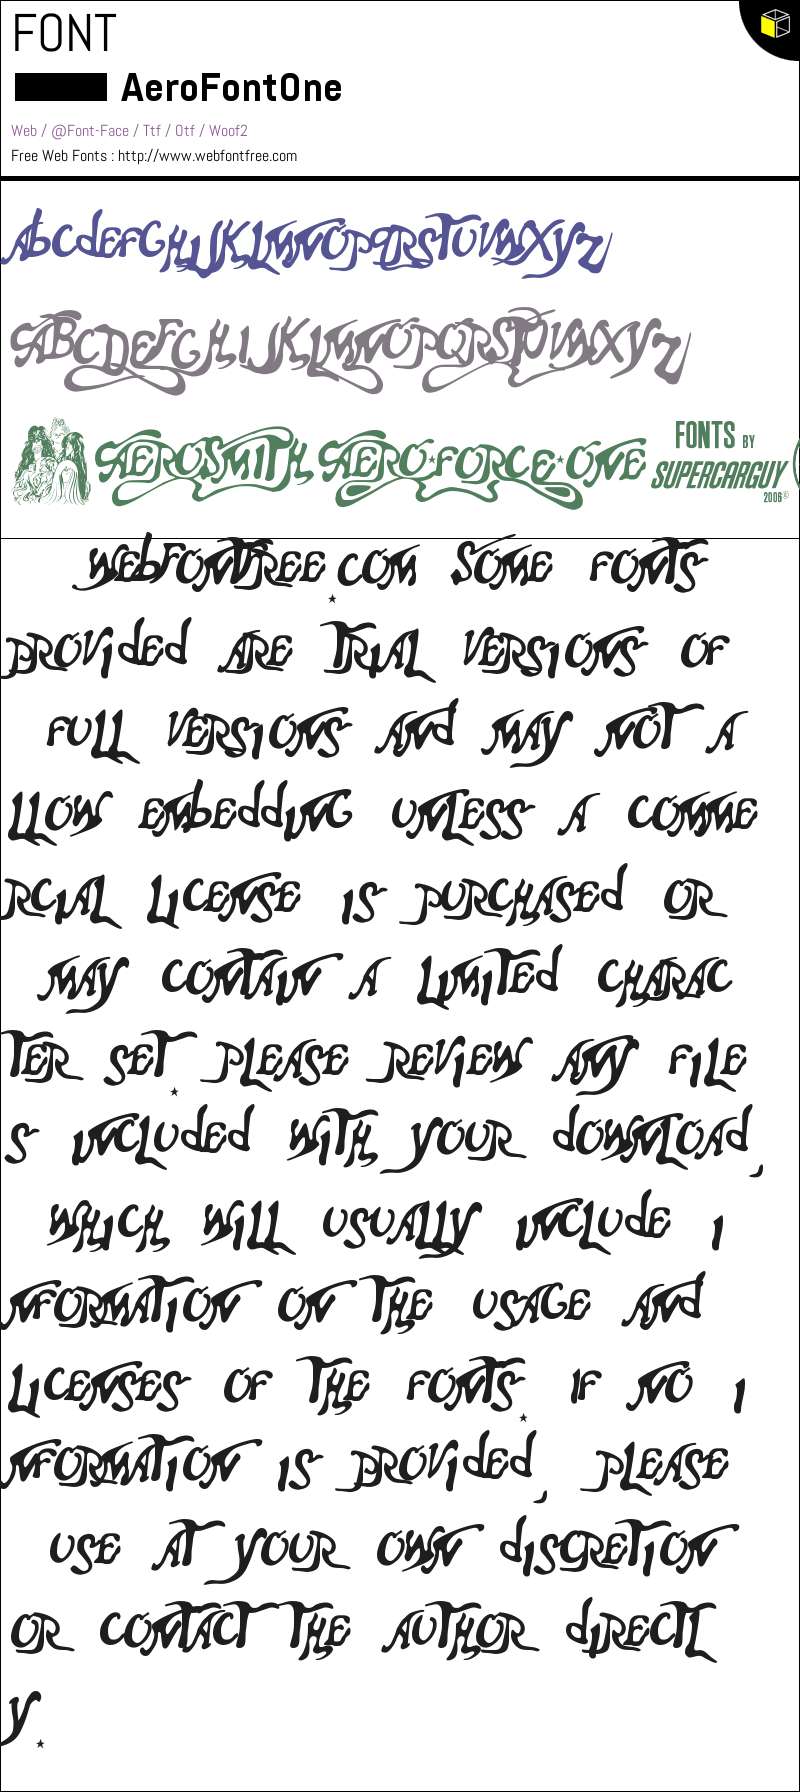 FONT
AeroFontOne
Web / @Font-Face / Ttf / Otf / Woof2
Free Web Fonts : http://www.webfontfree.com
AbCdEFGHIJKLMNOPQRSTUVWXYZ
ABCDEFGHIJKLMNOPQRSTUVWXYZ
AEROSMITH AERO★FORCE★ONE FONTS BY SUPERCARGUY 2006©
WEbFONTFREE.COM SOME FONTS
PROVIdEd ARE TRIAL VERSIONS OF
FULL VERSIONS ANd MAY NOT A
LLOW EMbEddING UNLESS A COMME
RCIAL LICENSE IS PURCHASEd OR
MAY CONTAIN A LIMITEd CHARAC
TER SET. PLEASE REVIEW ANY FILE
S INCLUdEd WITH YOUR dOWNLOAd,
WHICH WILL USUALLY INCLUdE I
NFORMATION ON THE USAGE ANd
LICENSES OF THE FONTS. IF NO I
NFORMATION IS PROVIdEd, PLEASE
USE AT YOUR OWN dISCRETION
OR CONTACT THE AUTHOR dIRECTL
Y.